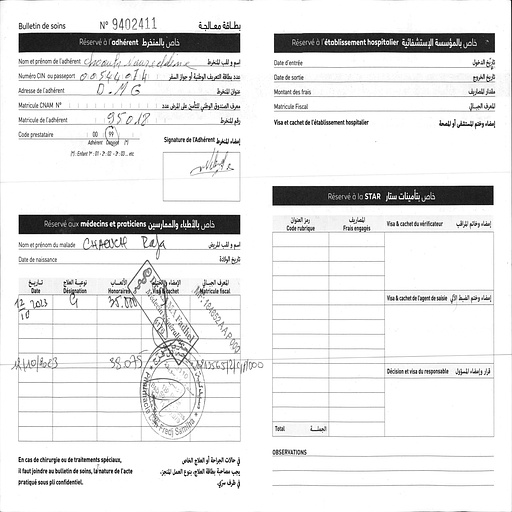 Bulletin de soins N° 9402411 بطاقة معالجة
Réservé à l'adhérent خاص بالمنخرط
Nom et prénom de l'adhérent اسم و لقب المنخرط
Numéro CIN ou passeport 00544074 عدد بطاقة التعريف الوطنية أو جواز السفر
Adresse de l'adhérent D.MG عنوان المنخرط
Matricule CNAM N° معرف الصندوق الوطني للتأمين على المرض عدد
Matricule de l'adhérent 95018 رقم المنخرط
Code prestataire 00 99
Adhérent Conjoint (*)
(*): Enfant 1er : 01 - 2 : 02 - 3 : 03 ... etc
Signature de l'Adhérent إمضاء المنخرط
Réservé aux médecins et praticiens خاص بالأطباء والممارسين
Nom et prénom du malade CHAOUCH Raja اسم و لقب المريض
Date de naissance تاريخ الولادة
تاريخ نوعية العلاج الأتعاب المعرف الجبائي
Date Désignation Honoraires Visa & cachet Matricule fiscal
12/10 2023 G 35.000
12/10/2023 38.075
En cas de chirurgie ou de traitements spéciaux,
il faut joindre au bulletin de soins, la nature de l'acte
pratiqué sous pli confidentiel.
في حالات الجراحة أو العلاج الخاص
يجب مصاحبة بطاقة العلاج، بنوع العمل المنجز،
في ظرف سري.
Réservé à l'établissement hospitalier خاص بالمؤسسة الإستشفائية
Date d'entrée تاريخ الدخول
Date de sortie تاريخ الخروج
Montant des frais مقدار المصاريف
Matricule Fiscal المعرف الجبائي
Visa et cachet de l'établissement hospitalier إمضاء وختم المستشفى أو المصحة
Réservé à la STAR خاص بتأمينات ستار
رمز العنوان المصاريف
Code rubrique Frais engagés Visa & cachet du vérificateur إمضاء وخاتم المراقب
Visa & cachet de l'agent de saisie إمضاء وختم الضبط الآلي
Décision et visa du responsable قرار وإمضاء المسؤول
Total الجملة
OBSERVATIONS